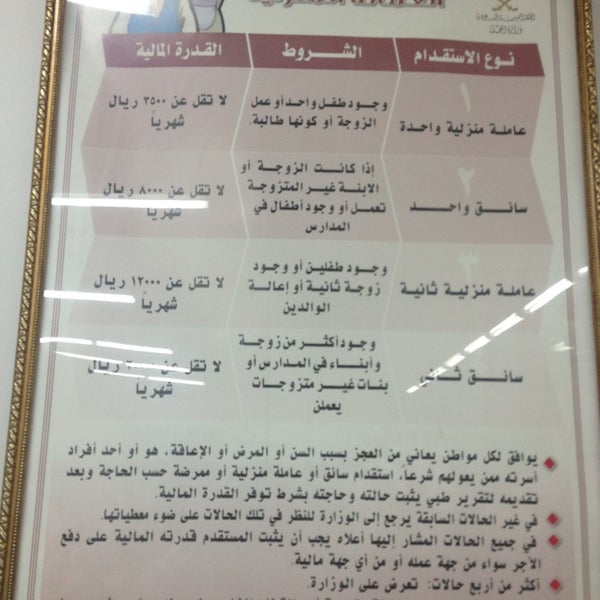 وزارة العمل
نوع الاستقدام
الشروط
القدرة المالية
١
عاملة منزلية واحدة
وجود طفل واحد أو عمل
الزوجة أو كونها طالبة.
لا تقل عن ٣٥٠٠ ريال
شهرياً
٢
سائق واحد
إذا كانت الزوجة أو
الابنة غير المتزوجة
تعمل أو وجود أطفال في
المدارس
لا تقل عن ٨٠٠٠ ريال
شهرياً
٣
عاملة منزلية ثانية
وجود طفلين أو وجود
زوجة ثانية أو إعالة
الوالدين
لا تقل عن ١٢٠٠٠ ريال
شهرياً
سائق ثاني
وجود أكثر من زوجة
وأبناء في المدارس أو
بنات غير متزوجات
يعملن
لا تقل عن ريال
شهرياً
يوافق لكل مواطن يعاني من العجز بسبب السن أو المرض أو الإعاقة، هو أو أحد أفراد
أسرته ممن يعولهم شرعاً، استقدام سائق أو عاملة منزلية أو ممرضة حسب الحاجة وبعد
تقديمه لتقرير طبي يثبت حالته وحاجته بشرط توفر القدرة المالية.
في غير الحالات السابقة يرجع إلى الوزارة للنظر في تلك الحالات على ضوء معطياتها.
في جميع الحالات المشار إليها أعلاه يجب أن يثبت المستقدم قدرته المالية على دفع
الآجر سواء من جهة عمله أو من أي جهة مالية.
أكثر من أربع حالات: تعرض على الوزارة.